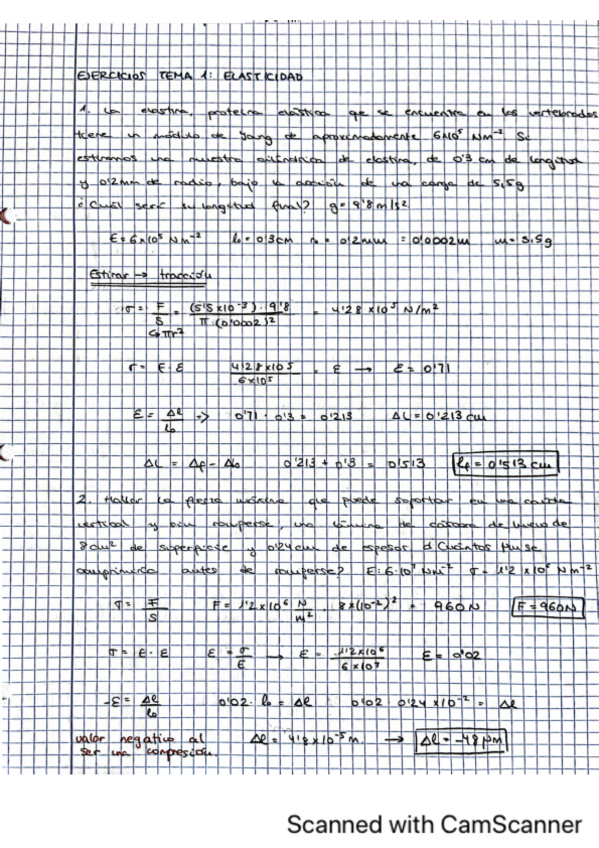 EJERCICIOS TEMA 1: ELASTICIDAD
1. La elastina, proteina elástica que se encuentra en los vertebrados
tiene un módulo de Yang de aproximadamente 6x10⁵ Nm⁻² Si
estiramos una muestra cilíndrica de elastina, de 0'3 cm de longitud
y 0'2mm de radio, bajo la acción de una carga de 5,5g
¿Cuál será su longitud final? g = 9'8 m/s²
E = 6x10⁵ Nm⁻² l₀ = 0'3cm r = 0'2mm = 0'0002m m = 5,5g
Estirar → tracción
σ = F/S = (5'5x10⁻³) · 9'8 / π · (0'0002)² = 4'28 x10⁵ N/m²
πr²
σ = E · ε 4'28x10⁵ / 6x10⁵ = ε → ε = 0'71
ε = Δl/l₀ => 0'71 · 0'3 = 0'213 ΔL = 0'213 cm
ΔL = Δf - Δo 0'213 + 0'3 = 0'513 lf = 0'513 cm
2. Hallar la fuerza máxima que puede soportar en una caída
vertical y sin romperse, una lámina de cáscara de huevo de
8cm² de superficie y 0'24cm de espesor. ¿Cuántos μm se
comprimirá antes de romperse? E: 6·10⁷ Nm⁻² σ = 1'2 x10⁶ Nm⁻²
σ = F/S F = 1'2x10⁶ N/m² · 8x(10⁻²)² = 960N F = 960N
σ = E · ε ε = σ/E → ε = 1'2x10⁶ / 6x10⁷ ε = 0'02
-ε = Δl/l₀ 0'02 · l₀ = Δl 0'02 · 0'24 x10⁻² = Δl
valor negativo al Δl = 4'8x10⁻⁵ m → Δl = -48 μm
ser una compresión.
Scanned with CamScanner